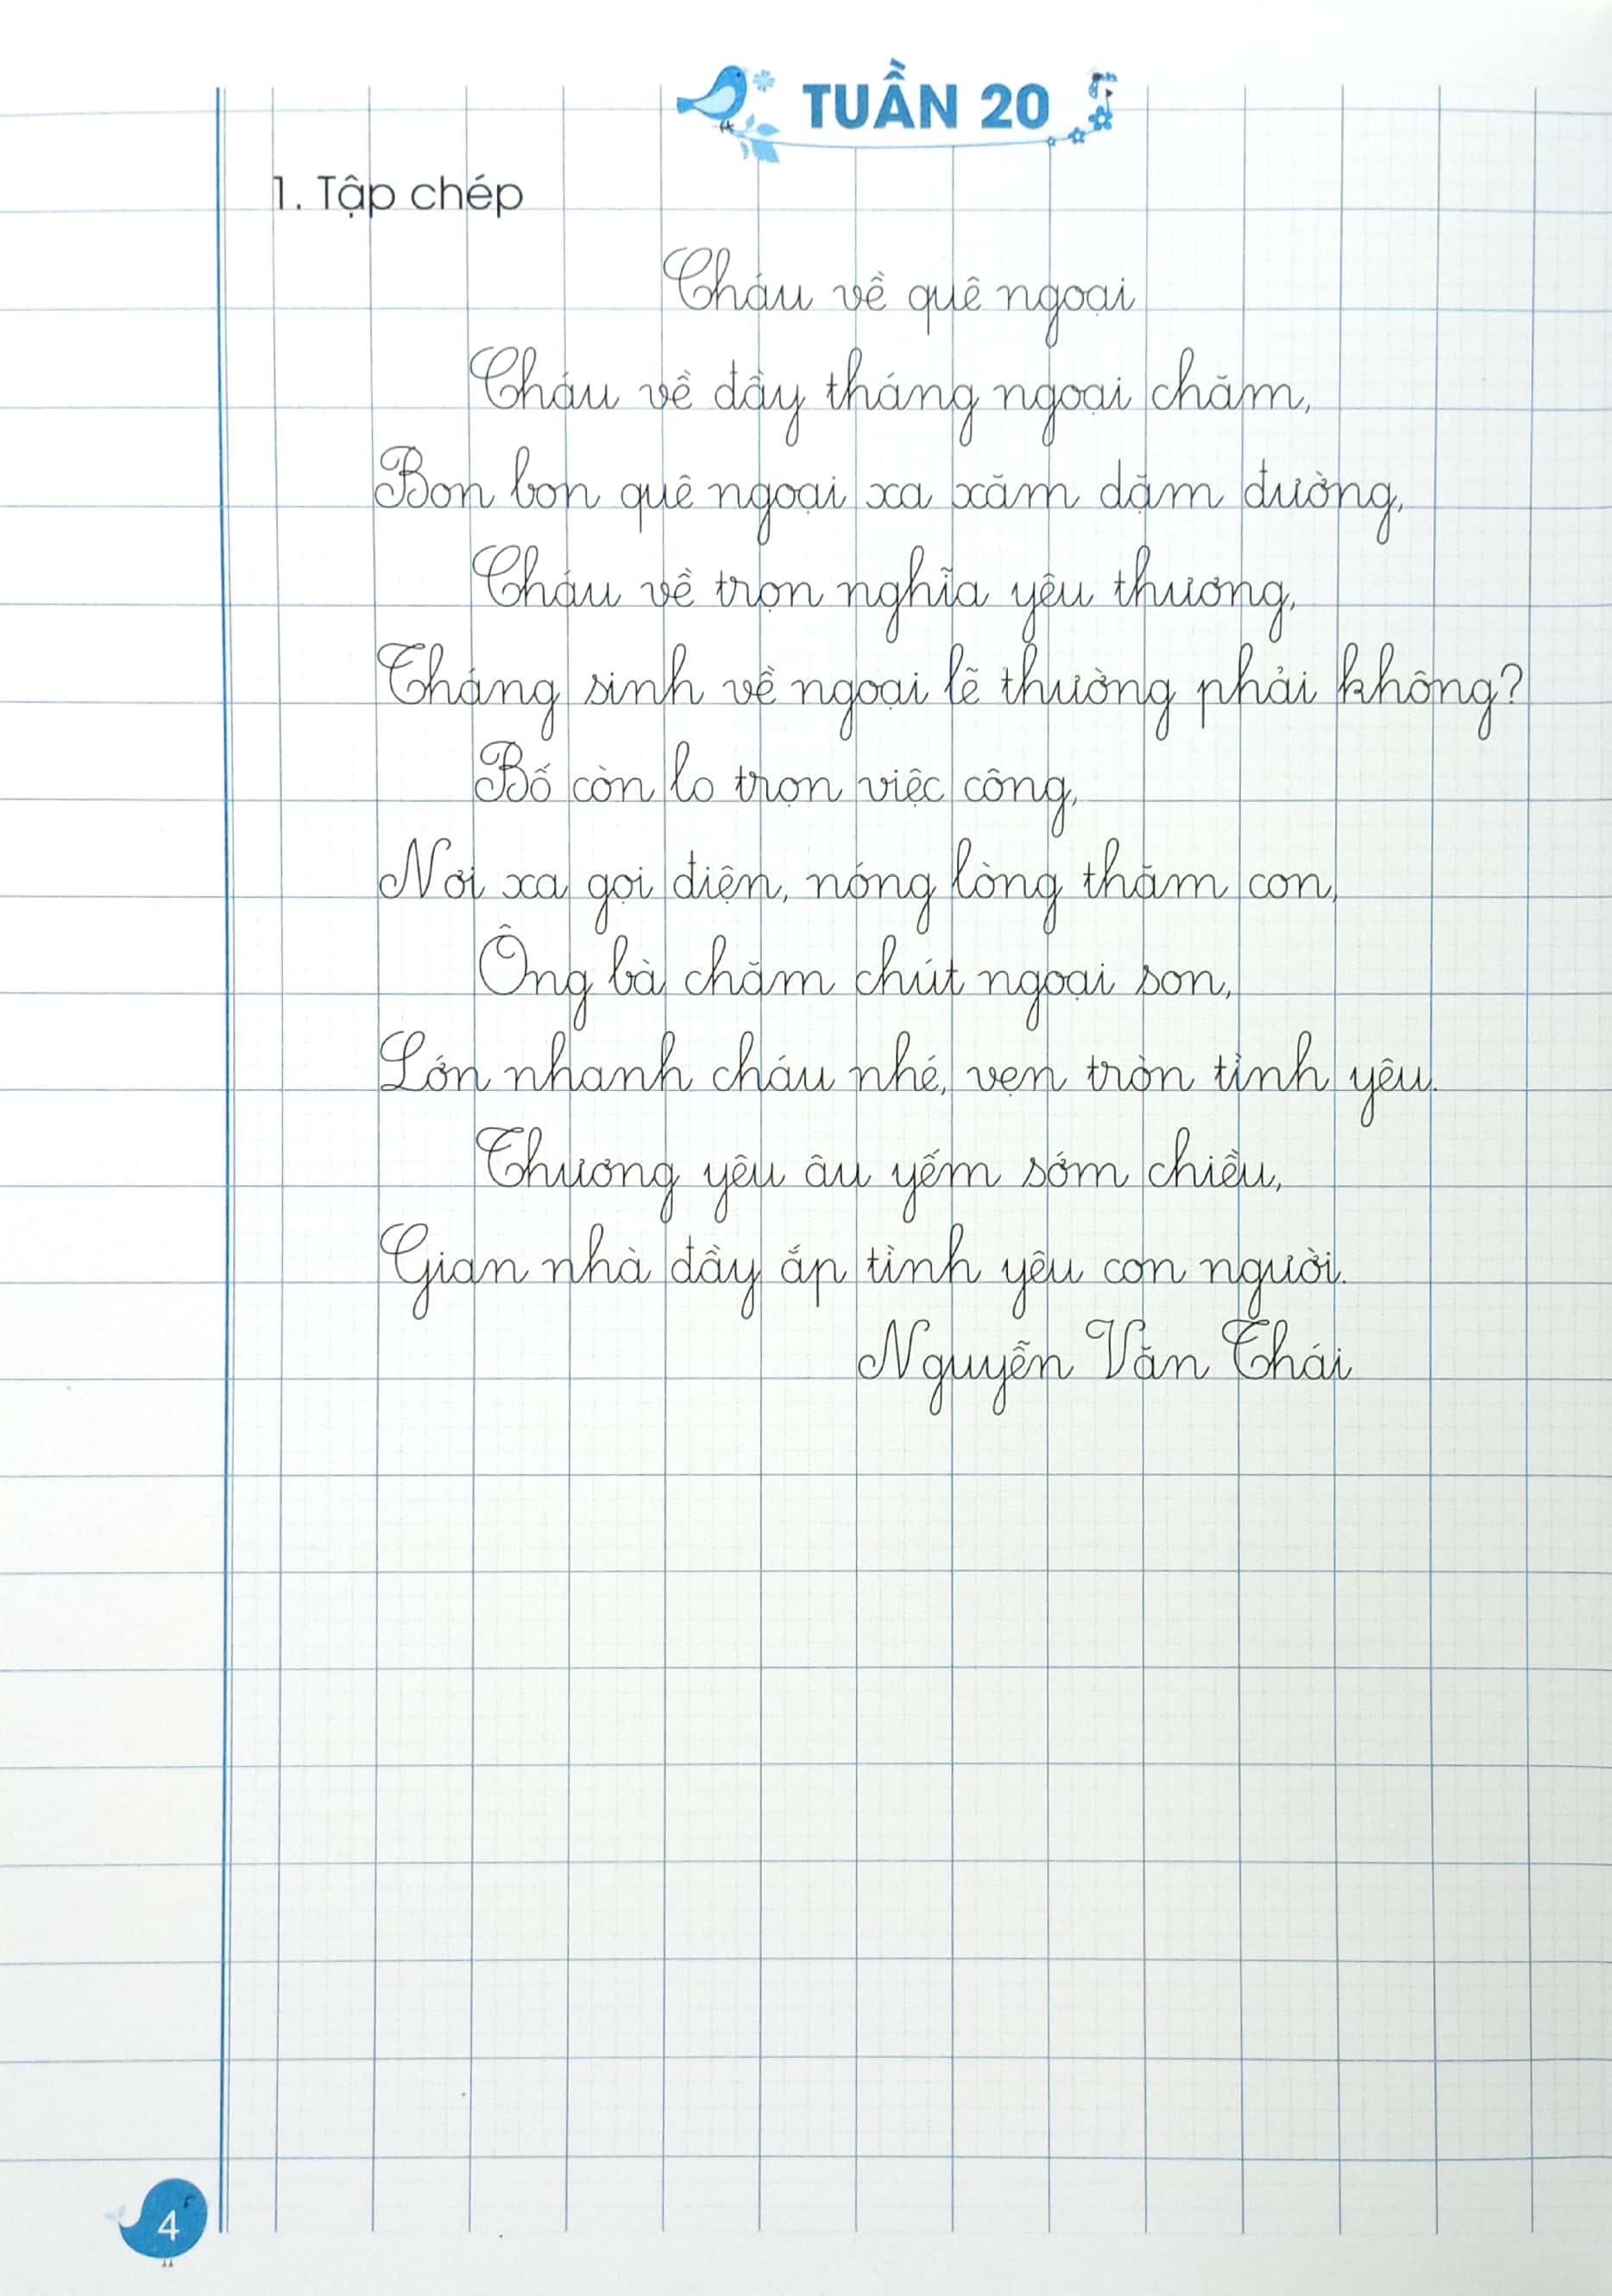 TUẦN 20
1. Tập chép
Cháu về quê ngoại
Cháu về đầy tháng ngoại chăm,
Bon bon quê ngoại xa xăm dặm đường,
Cháu về trọn nghĩa yêu thương,
Tháng sinh về ngoại lẽ thường phải không?
Bố còn lo trọn việc công,
Nơi xa gọi điện, nóng lòng thăm con,
Ông bà chăm chút ngoại son,
Lớn nhanh cháu nhé, vẹn tròn tình yêu.
Thương yêu âu yếm sớm chiều,
Gian nhà đầy ắp tình yêu con người.
Nguyễn Văn Thái
4